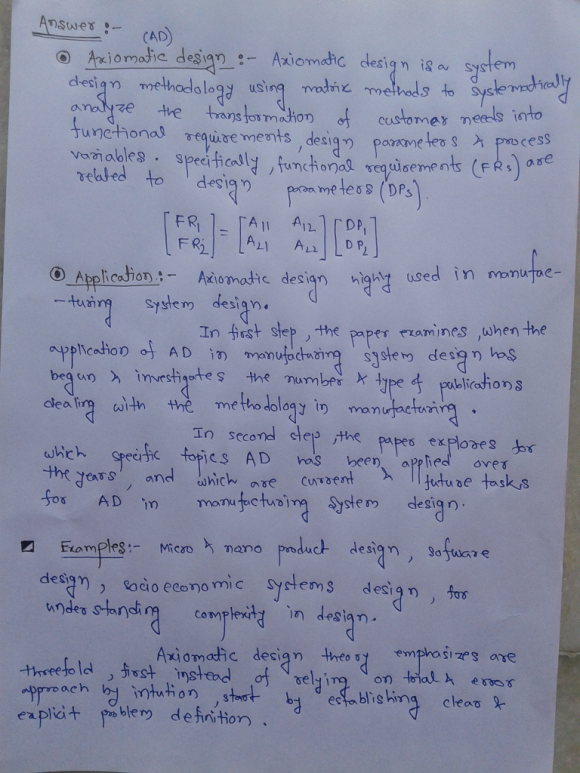 Answer :-
(AD)
Axiomatic design :- Axiomatic design is a system
design methodology using matrix methods to systematically
analyze the transformation of customer needs into
functional requirements, design parameters & process
variables. specifically, functional requirements (FRs) are
related to design parameters (DPs).
[FR1 FR2] = [A11 A12 A21 A22] [DP1 DP2]
Application :- Axiomatic design highly used in manufac-
-turing system design.
In first step, the paper examines, when the
application of AD in manufacturing system design has
begun & investigates the number & type of publications
dealing with the methodology in manufacturing.
In second step, the paper explores for
which specific topics AD has been applied over
the years, and which are current & future tasks
for AD in manufacturing system design.
Examples:- Micro & nano product design, sofware
design, socioeconomic systems design, for
understanding complexity in design.
Axiomatic design theory emphasizes are
threefold, first instead of relying on trial & error
approach by intution, start by establishing clear &
explicit problem definition.